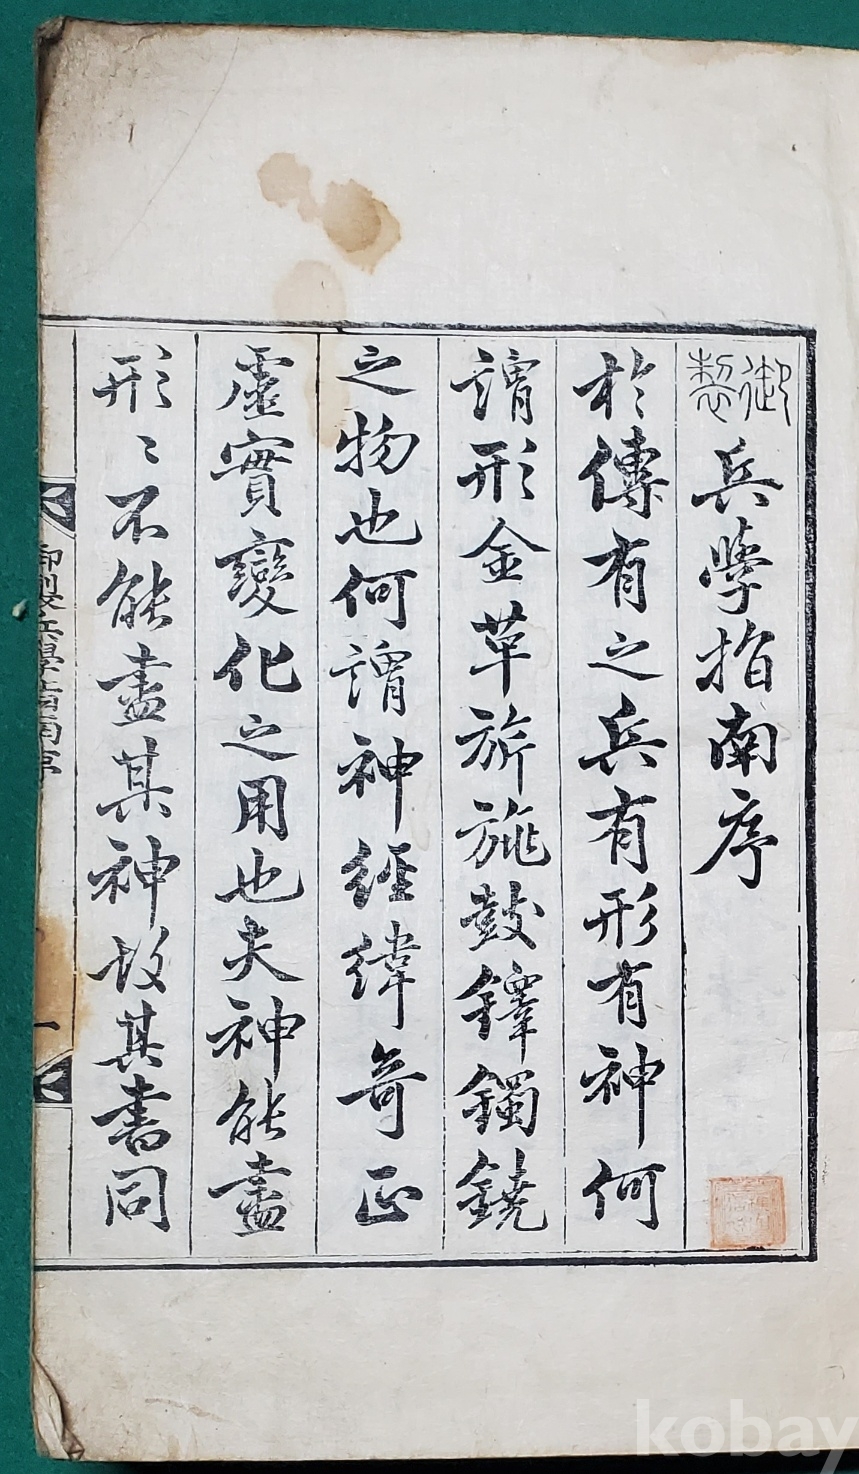 御製兵學指南序
於傳有之兵有形有神何
謂形金革旂旐鼓鐸鐲鐃
之物也何謂神經緯奇正
虛實變化之用也夫神能盡
形〻不能盡其神故其書同
御製兵學指南序
一
kobay